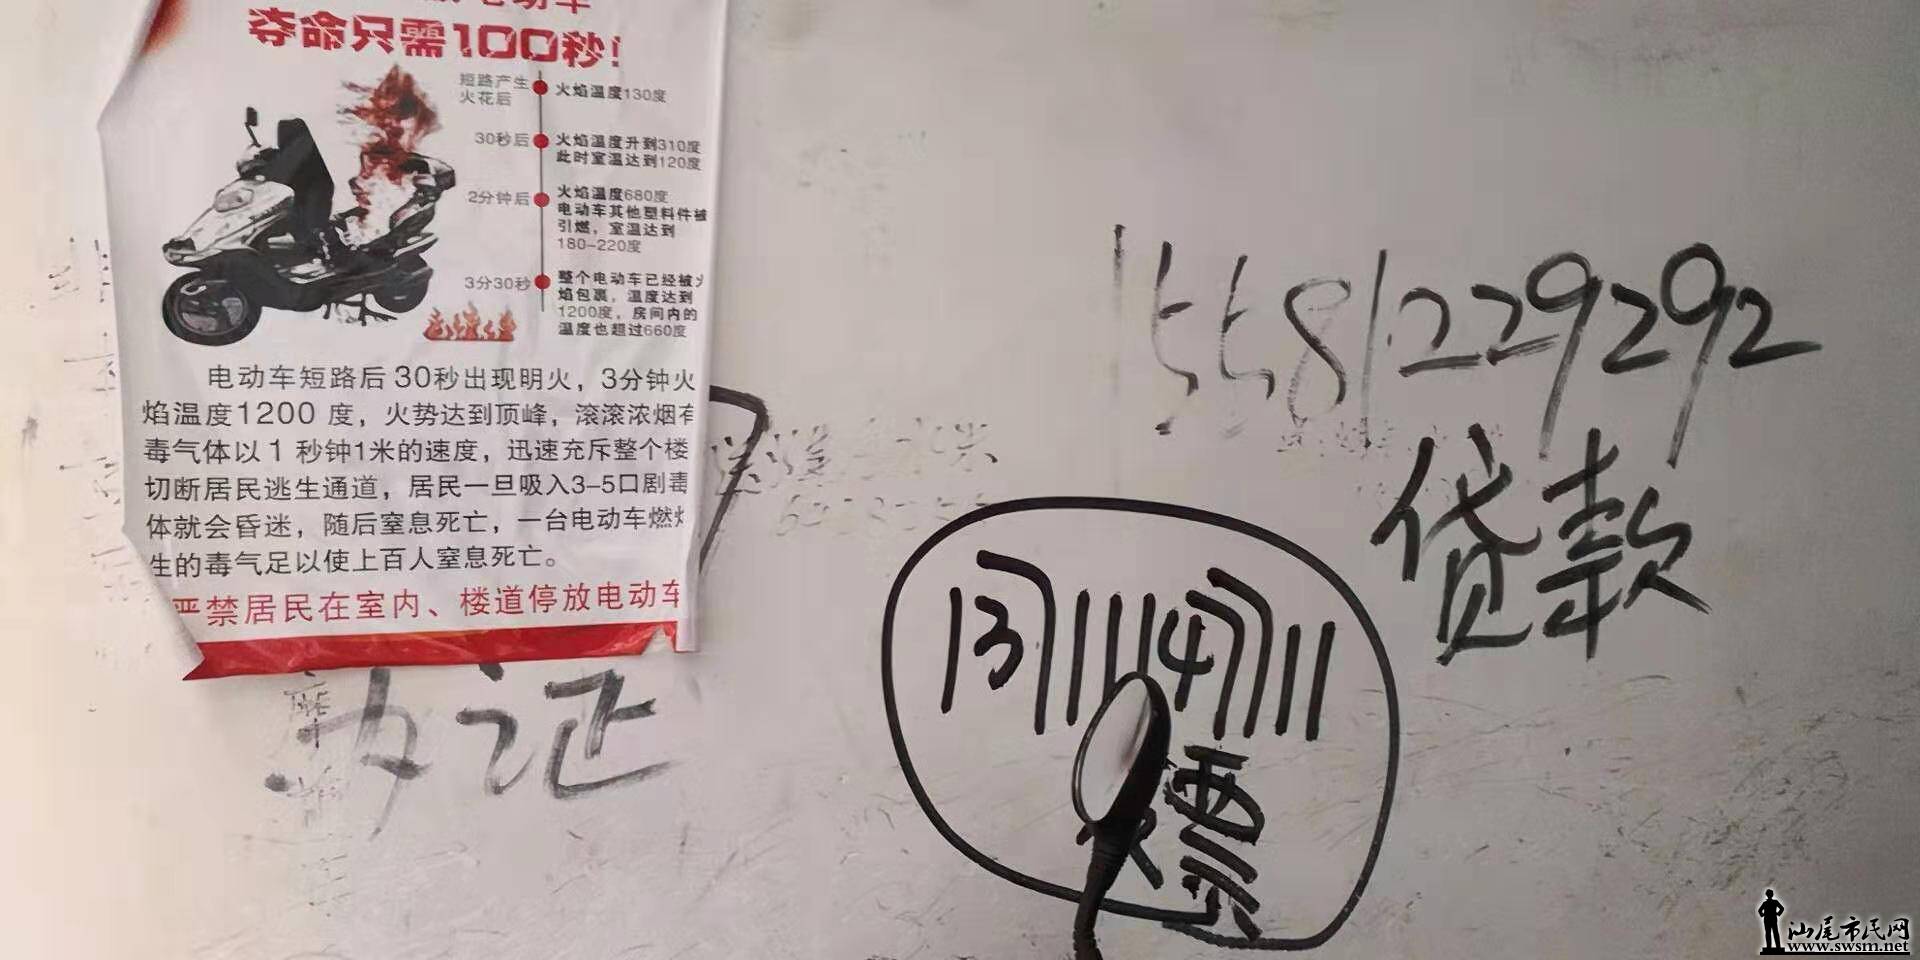 夺命只需100秒!
短路产生
火花后
火焰温度130度
30秒后
火焰温度升到310度
此时室温达到120度
2分钟后
火焰温度680度
电动车其他塑料件被
引燃，室温达到
180-220度
3分30秒
整个电动车已经被火
焰包裹，温度达到
1200度，房间内的
温度也超过660度
电动车短路后30秒出现明火，3分钟火
焰温度1200 度，火势达到顶峰，滚滚浓烟有
毒气体以 1 秒钟1米的速度，迅速充斥整个楼
切断居民逃生通道，居民一旦吸入3-5口剧毒
体就会昏迷，随后窒息死亡，一台电动车燃烧
生的毒气足以使上百人窒息死亡。
严禁居民在室内、楼道停放电动车
办证
15581229292
贷款
票
汕尾市民网
www.swsm.net